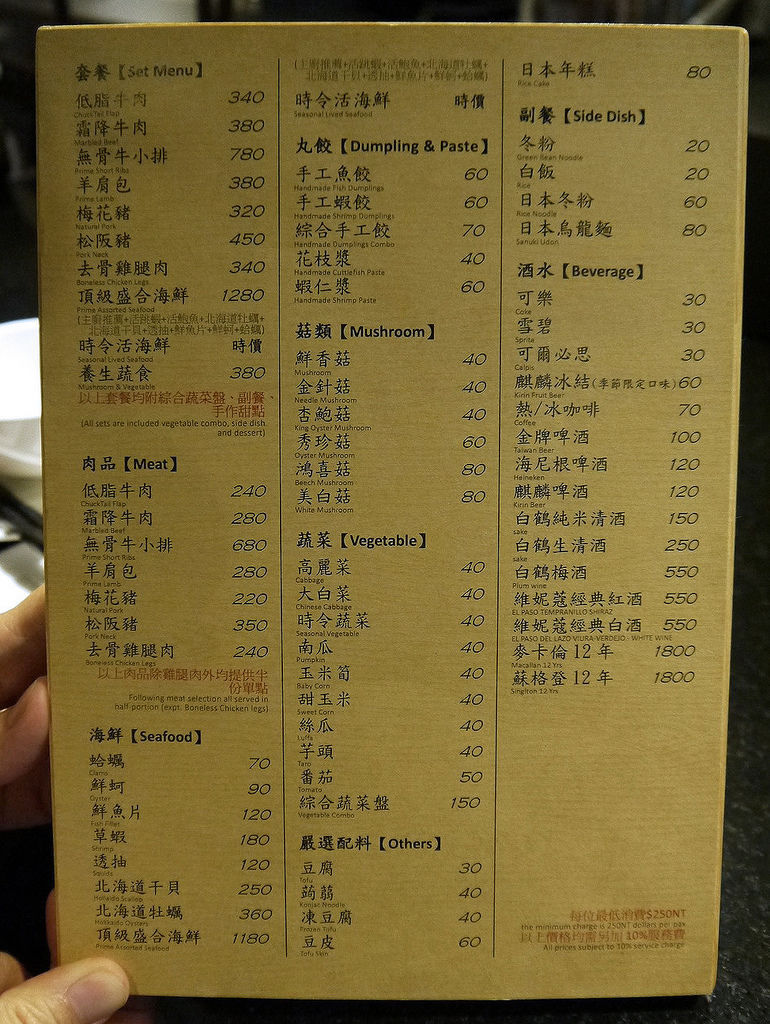 套餐【Set Menu】
低脂牛肉 340
ChuckTail Flap
霜降牛肉 380
Marbled Beef
無骨牛小排 780
Prime Short Ribs
羊肩包 380
Prime Lamb
梅花豬 320
Natural Pork
松阪豬 450
Pork Neck
去骨雞腿肉 340
Boneless Chicken Legs
頂級盛合海鮮 1280
Prime Assorted Seafood
(主廚推薦+活跳蝦+活鮑魚+北海道牡蠣+
北海道干貝+透抽+鮮魚片+鮮蚵+蛤蠣)
時令活海鮮 時價
Seasonal Lived Seafood
養生蔬食 380
Mushroom & Vegetable
以上套餐均附綜合蔬菜盤、副餐、
手作甜點
(All sets are included vegetable combo, side dish
and dessert)
肉品【Meat】
低脂牛肉 240
ChuckTail Flap
霜降牛肉 280
Marbled Beef
無骨牛小排 680
Prime Short Ribs
羊肩包 280
Prime Lamb
梅花豬 220
Natural Pork
松阪豬 350
Pork Neck
去骨雞腿肉 240
Boneless Chicken Legs
以上肉品除雞腿肉外均提供半
份單點
Following meat selection all served in
half-portion (expt. Boneless Chicken legs)
海鮮【Seafood】
蛤蠣 70
Clams
鮮蚵 90
Oyster
鮮魚片 120
Fish Fillet
草蝦 180
Shrimp
透抽 120
Squids
北海道干貝 250
Hokkaido Scallop
北海道牡蠣 360
Hokkaido Oysters
頂級盛合海鮮 1180
Prime Assorted Seafood
(主廚推薦+活跳蝦+活鮑魚+北海道牡蠣+
北海道干貝+透抽+鮮魚片+鮮蚵+蛤蠣)
時令活海鮮 時價
Seasonal Lived Seafood
丸餃【Dumpling & Paste】
手工魚餃 60
Handmade Fish Dumplings
手工蝦餃 60
Handmade Shrimp Dumplings
綜合手工餃 70
Handmade Dumplings Combo
花枝漿 40
Handmade Cuttlefish Paste
蝦仁漿 60
Handmade Shrimp Paste
菇類【Mushroom】
鮮香菇 40
Mushroom
金針菇 40
Needle Mushroom
杏鮑菇 40
King Oyster Mushroom
秀珍菇 60
Oyster Mushroom
鴻喜菇 80
Beech Mushroom
美白菇 80
White Mushroom
蔬菜【Vegetable】
高麗菜 40
Cabbage
大白菜 40
Chinese Cabbage
時令蔬菜 40
Seasonal Vegetable
南瓜 40
Pumpkin
玉米筍 40
Baby Corn
甜玉米 40
Sweet Corn
絲瓜 40
Luffa
芋頭 40
Taro
番茄 50
Tomato
綜合蔬菜盤 150
Vegetable Combo
嚴選配料【Others】
豆腐 30
Tofu
蒟蒻 40
Konjac Noodle
凍豆腐 40
Frozen Tofu
豆皮 60
Tofu Skin
日本年糕 80
Rice Cake
副餐【Side Dish】
冬粉 20
Green Bean Noodle
白飯 20
Rice
日本冬粉 60
Rice Noodle
日本烏龍麵 80
Sanuki Udon
酒水【Beverage】
可樂 30
Coke
雪碧 30
Sprite
可爾必思 30
Calpis
麒麟冰結(季節限定口味) 60
Kirin Fruit Beer
熱/冰咖啡 70
Coffee
金牌啤酒 100
Taiwan Beer
海尼根啤酒 120
Heineken
麒麟啤酒 120
Kirin Beer
白鶴純米清酒 150
sake
白鶴生清酒 250
sake
白鶴梅酒 550
Plum wine
維妮蔻經典紅酒 550
EL PASO TEMPRANILLO SHIRAZ
維妮蔻經典白酒 550
EL PASO DEL LAZO VIURA-VERDEJO.- WHITE WINE
麥卡倫12年 1800
Macallan 12 Yrs
蘇格登12年 1800
Singlton 12 Yrs
每位最低消費$250NT
the minimum charge is 250NT dollars per pax
以上價格均需另加10%服務費
All prices subject to 10% service charge